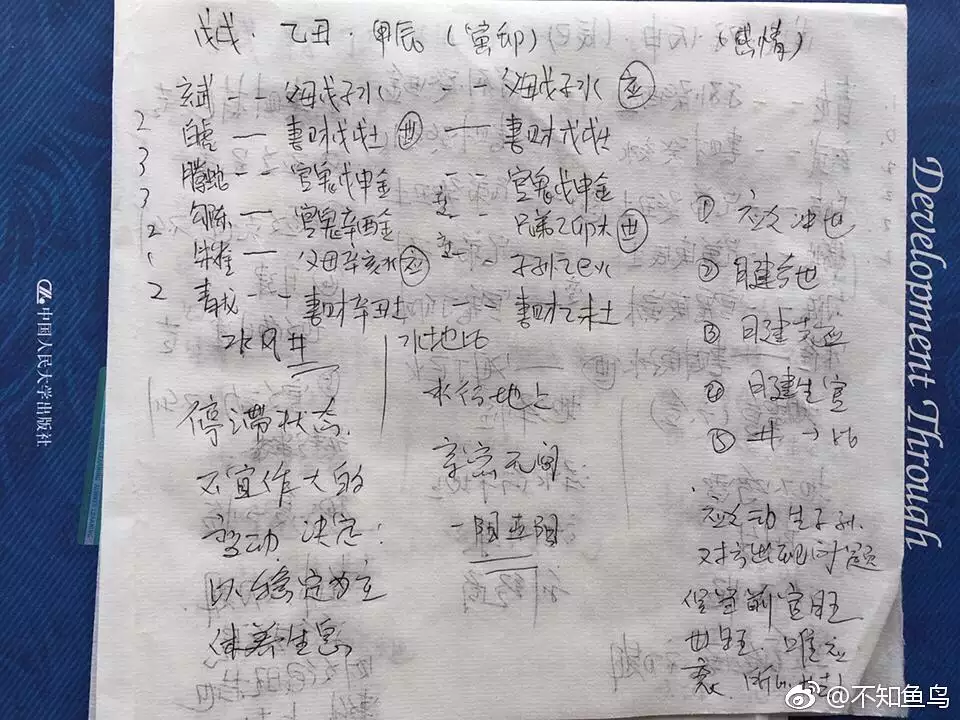 戊戌·乙丑·甲辰(寅卯) (感情)
玄武 -- 父母戊子水 -- 父母戊子水 应
2 白虎 — 妻财戊戌土 世 — 妻财戊戌土
3 腾蛇 -- 官鬼戊申金 -- 官鬼戊申金
3 勾陈 — 官鬼辛酉金 变 -- 兄弟乙卯木 世
2 朱雀 — 父母辛亥水 应 变 -- 子孙乙巳火
2 青龙 -- 妻财辛丑土 妻财乙未土
水风井
水地比
停滞状态.
不宜作大的
变动 决定:
以稳定为主
休养生息
水行地上
亲密无间
① 应爻冲世
② 日建合世
③ 日建克应
④ 日建生官
⑤ 井→比
应爻动生子孙.
对方出现问题
官旺
世旺. 唯应
衰.
Development Through
中国人民大学出版社
@不知鱼鸟